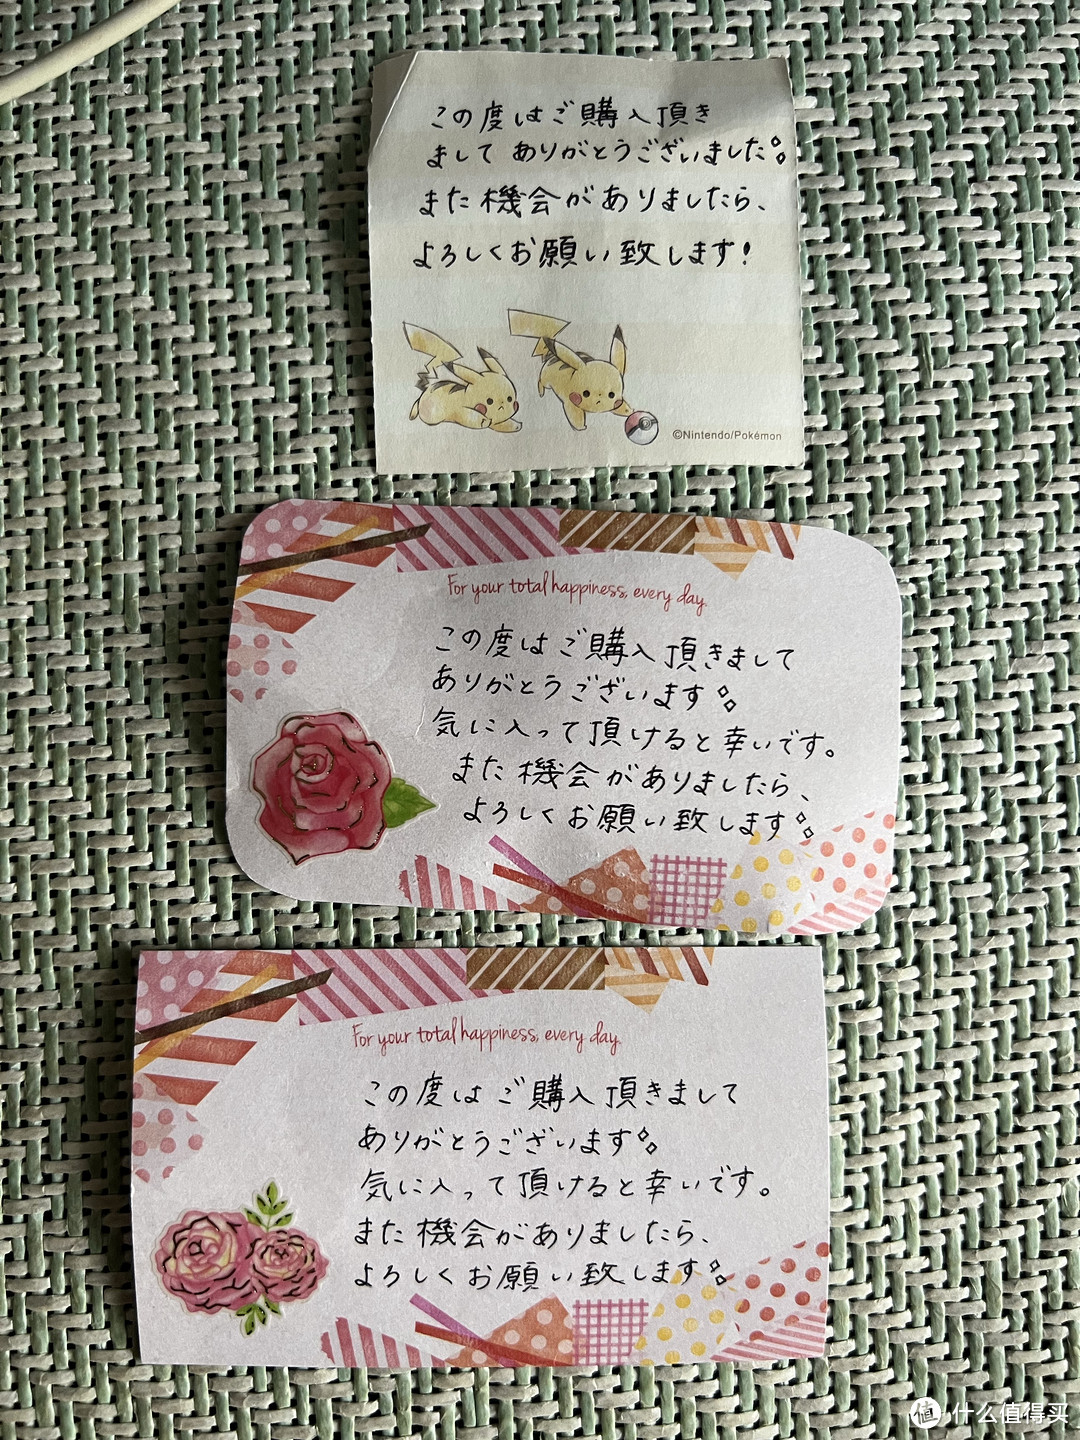 この度はご購入頂き
まして ありがとうございました
また機会がありましたら、
よろしくお願い致します!
©Nintendo/Pokémon
For your total happiness, every day.
この度はご購入頂きまして
ありがとうございます
気に入って頂けると幸いです。
また機会がありましたら、
よろしくお願い致します
For your total happiness, every day.
この度はご購入頂きまして
ありがとうございます
気に入って頂けると幸いです。
また機会がありましたら、
よろしくお願い致します
值 什么值得买